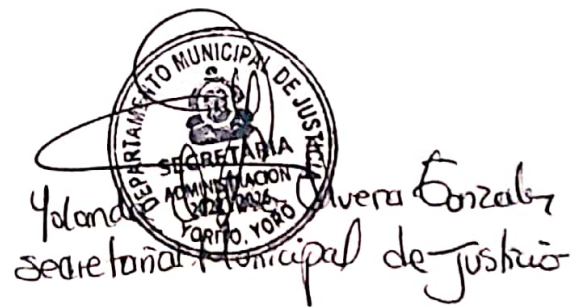 DEPARTAMENTO MUNICIPAL DE JUSTICIA
SECRETARIA
ADMINISTRACION
2022-2026
YORITO, YORO
Yolanda Olvera Gonzales
Secretaria Municipal de Justicia